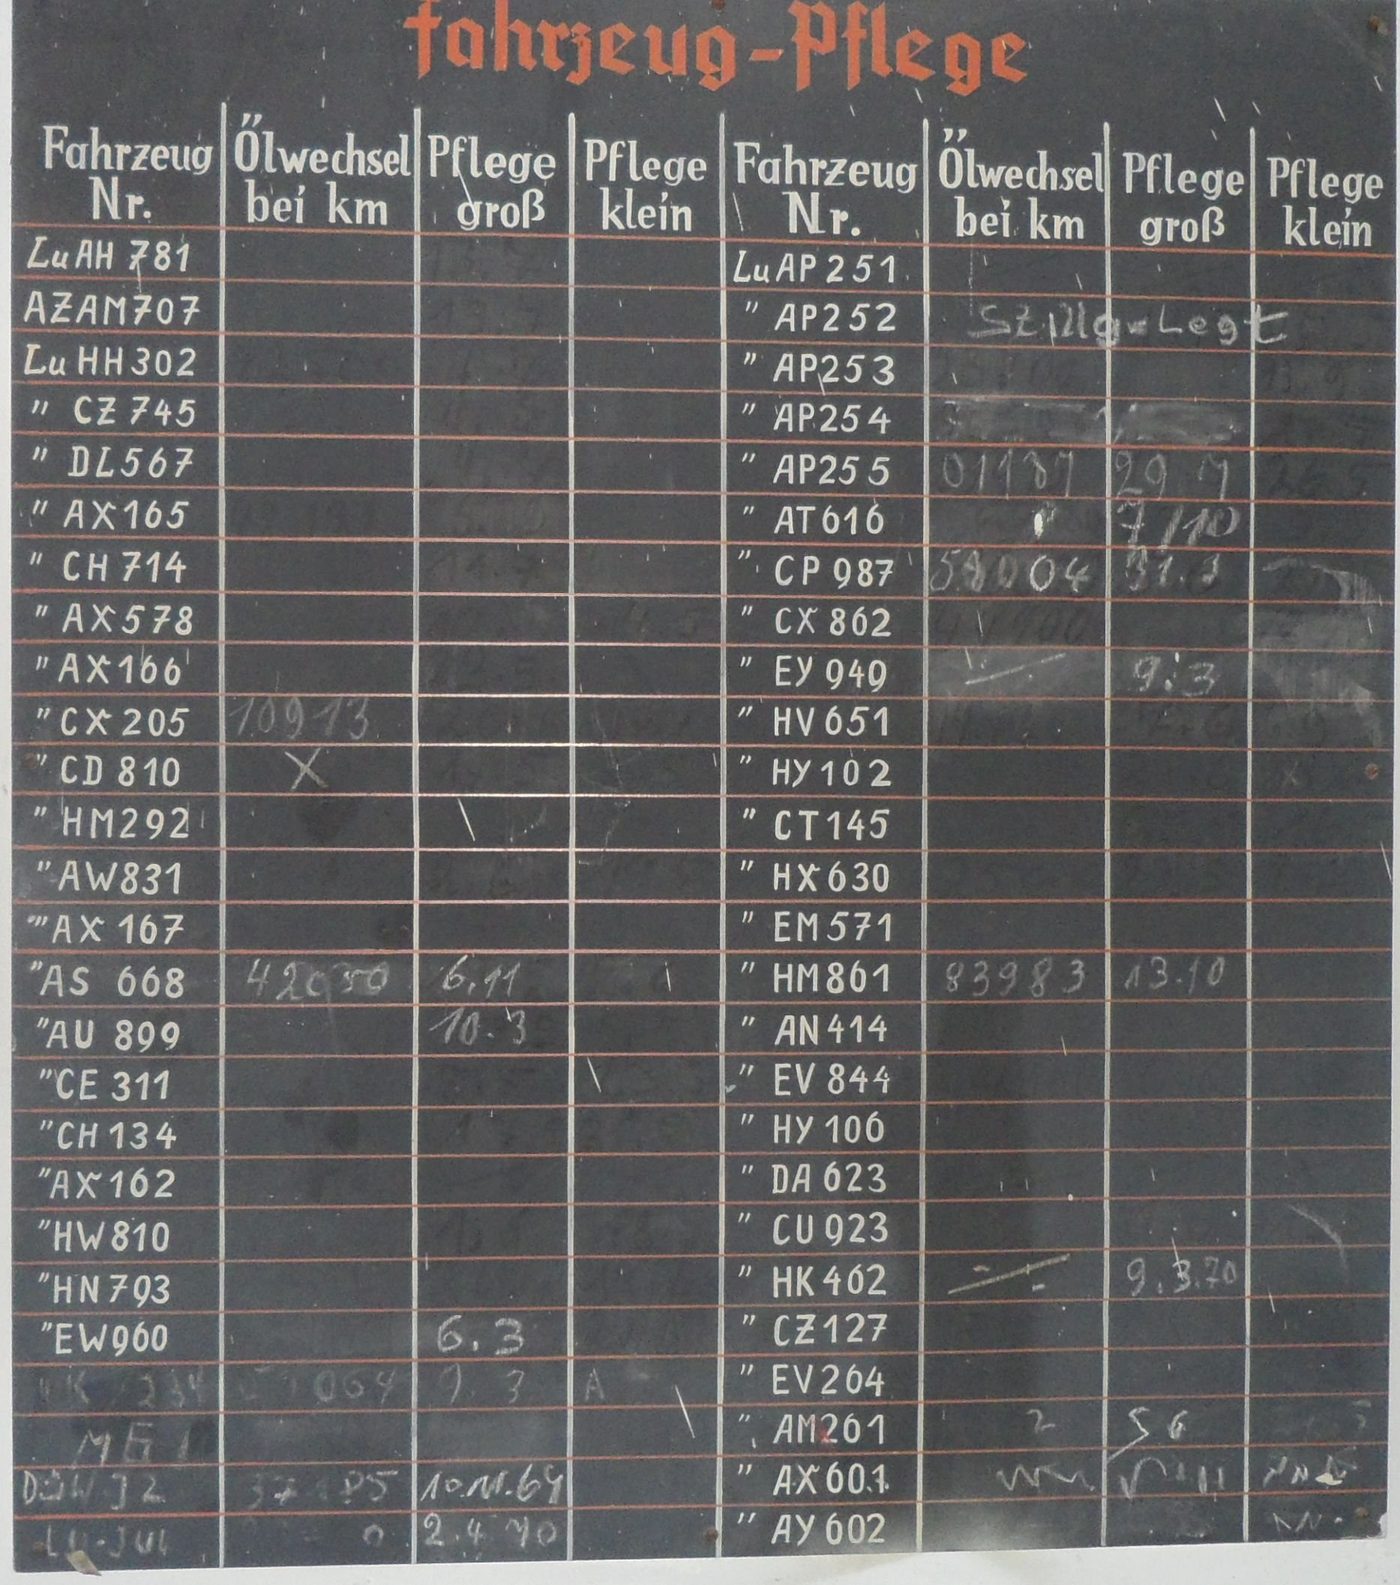 fahrzeug-Pflege
Fahrzeug Nr. Ölwechsel bei km Pflege groß Pflege klein Fahrzeug Nr. Ölwechsel bei km Pflege groß Pflege klein
Lu AH 781 Lu AP 251
AZ AM 707 " AP 252
Lu HH 302 " AP 253
" CZ 745 " AP 254
" DL 567 " AP 255 29
" AX 165 " AT 616 7/10
" CH 714 " CP 987 58004 31.3
" AX 578 " CX 862
" AX 166 " EY 949 9.3
" CX 205 10913 " HV 651
" CD 810 X " HY 102
" HM 292 " CT 145
" AW 831 " HX 630
" AX 167 " EM 571
" AS 668 6.11 " HM 861 83983 13.10
" AU 899 10.3 " AN 414
" CE 311 " EV 844
" CH 134 " HY 106
" AX 162 " DA 623
" HW 810 " CU 923
" HN 793 " HK 462 9.3.70
" EW 960 6.3 " CZ 127
9.3 " EV 264
" AM 261 2 5 6
" AX 601
2.4 70 " AY 602